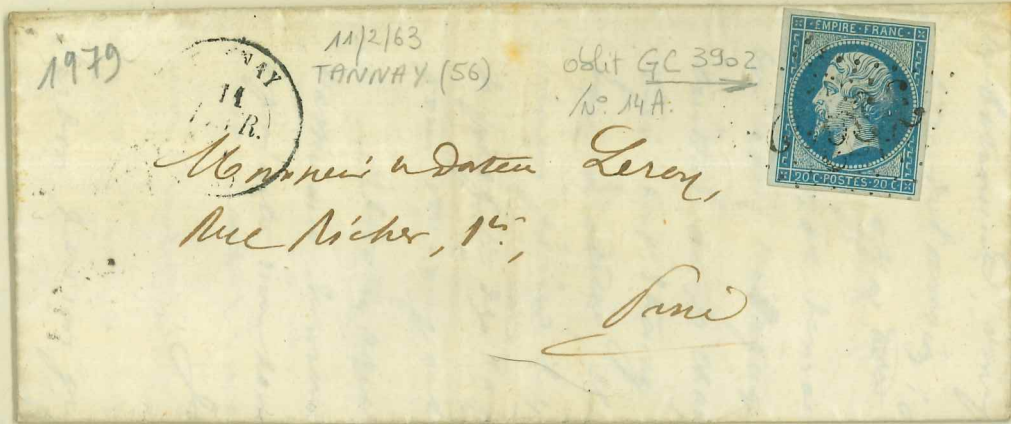 1979
11/2/63
TANNAY (56)
oblit GC 3902
/N° 14A.
NAY
11
R.
EMPIRE · FRANC ·
20 C · POSTES · 20 C
Monsieur le Docteur Leroy,
Rue Richer,
Paris